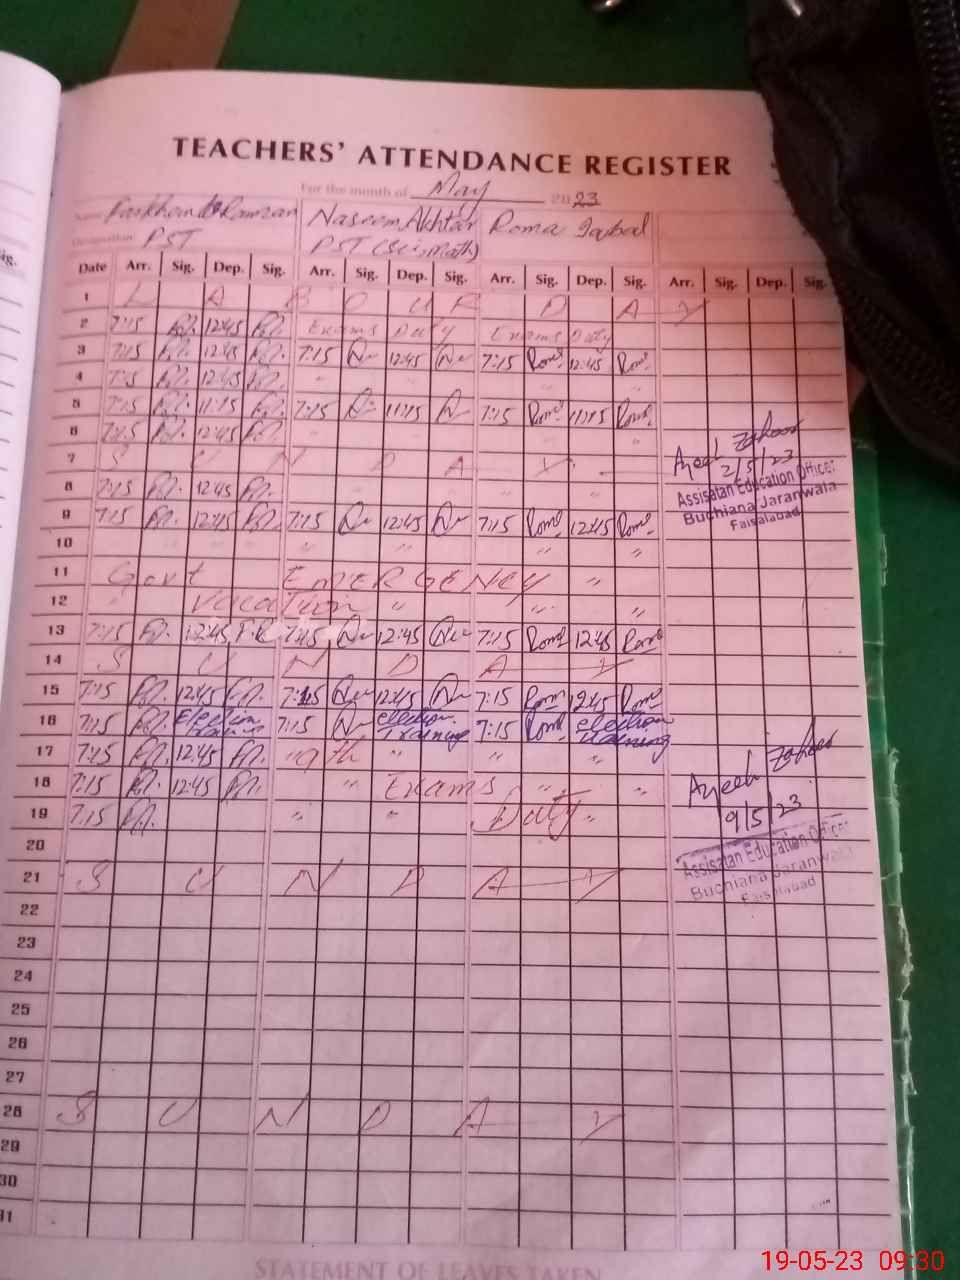 TEACHERS' ATTENDANCE REGISTER
For the month of May 2023
Name Naseem Akhtar Roma Iqbal
Designation PST PST (Sci, Math)
Date Arr. Sig. Dep. Sig. Arr. Sig. Dep. Sig. Arr. Sig. Dep. Sig. Arr. Sig. Dep. Sig.
1 L A B O U R D A Y
2 7:15 12:45 Exams Duty Exams Duty
3 7:15 12:45 7:15 12:45 7:15 Roma 12:45 Roma
4 7:15 12:45 " "
5 7:15 11:15 7:15 11:15 7:15 Roma 11:15 Roma
6 7:15 12:45 "
7 S U N D A Y
8 7:15 12:45 " "
9 7:15 12:45 7:15 12:45 7:15 Roma 12:45 Roma
10 " " " "
11 Govt EMERGENCY "
12 Vacation " " "
13 7:15 12:45 7:15 12:45 7:15 Roma 12:45 Roma
14 S U N D A Y
15 7:15 12:45 7:15 12:45 7:15 Roma 12:45 Roma
16 7:15 Election 7:15 election Training 7:15 Roma election training
17 7:15 12:45 " 9th " " "
18 7:15 12:45 " Exams " "
19 7:15 " " Duty "
20
21 S U N D A Y
22
23
24
25
26
27
28 S U N D A Y
29
30
31
2/5/23
Assisatan Education Officer
Buchiana Jaranwala
Faisalabad
9/5/23
Assisatan Education Officer
Buchiana Jaranwala
Faisalabad
STATEMENT OF LEAVES TAKEN
Sig.
19-05-23 09:30